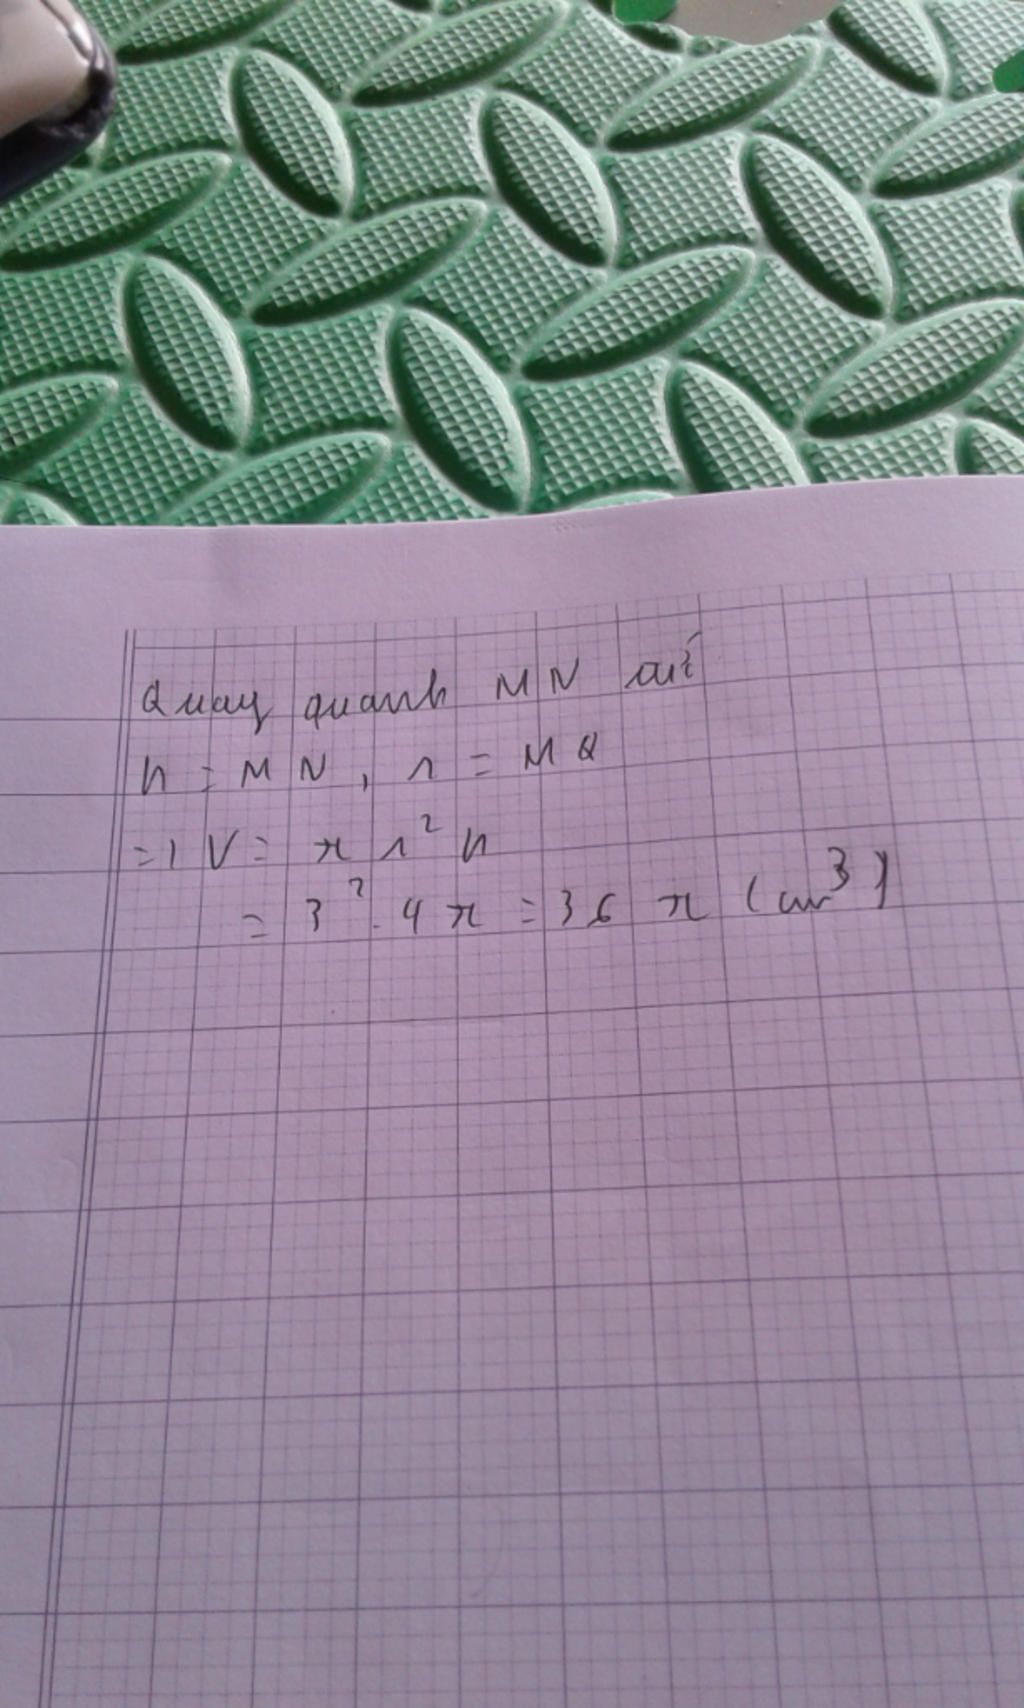 Quay quanh MN
h = MN, r = MQ
=> V = π r² h
= 3² . 4 π = 36 π (cm³)